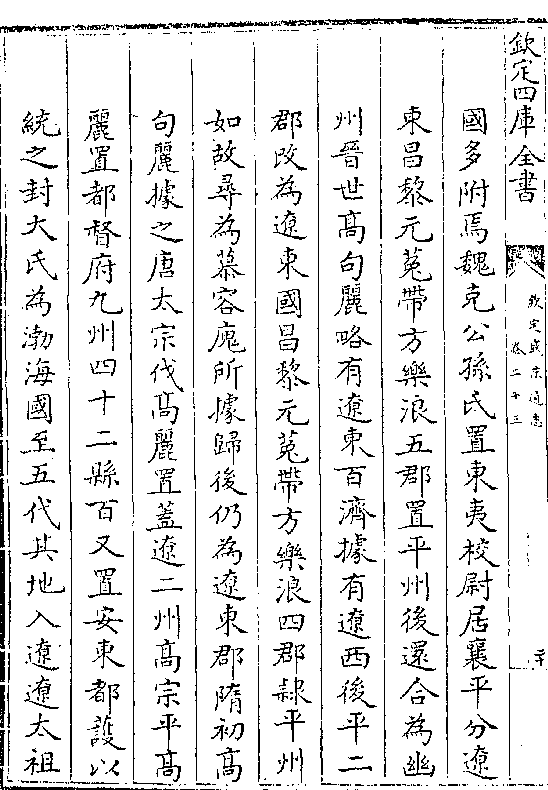 欽定四庫全書
欽定盛京通志
卷二十三
二十
國多附焉魏克公孫氏置東夷校尉居襄平分遼
東昌黎元菟帶方樂浪五郡置平州後還合為幽
州晉世高句麗略有遼東百濟據有遼西後平二
郡改為遼東國昌黎元菟帶方樂浪四郡隸平州
如故尋為慕容廆所據歸後仍為遼東郡隋初高
句麗據之唐太宗伐高麗置蓋遼二州高宗平高
麗置都督府九州四十二縣百又置安東都護以
統之封大氏為渤海國至五代其地入遼遼太祖